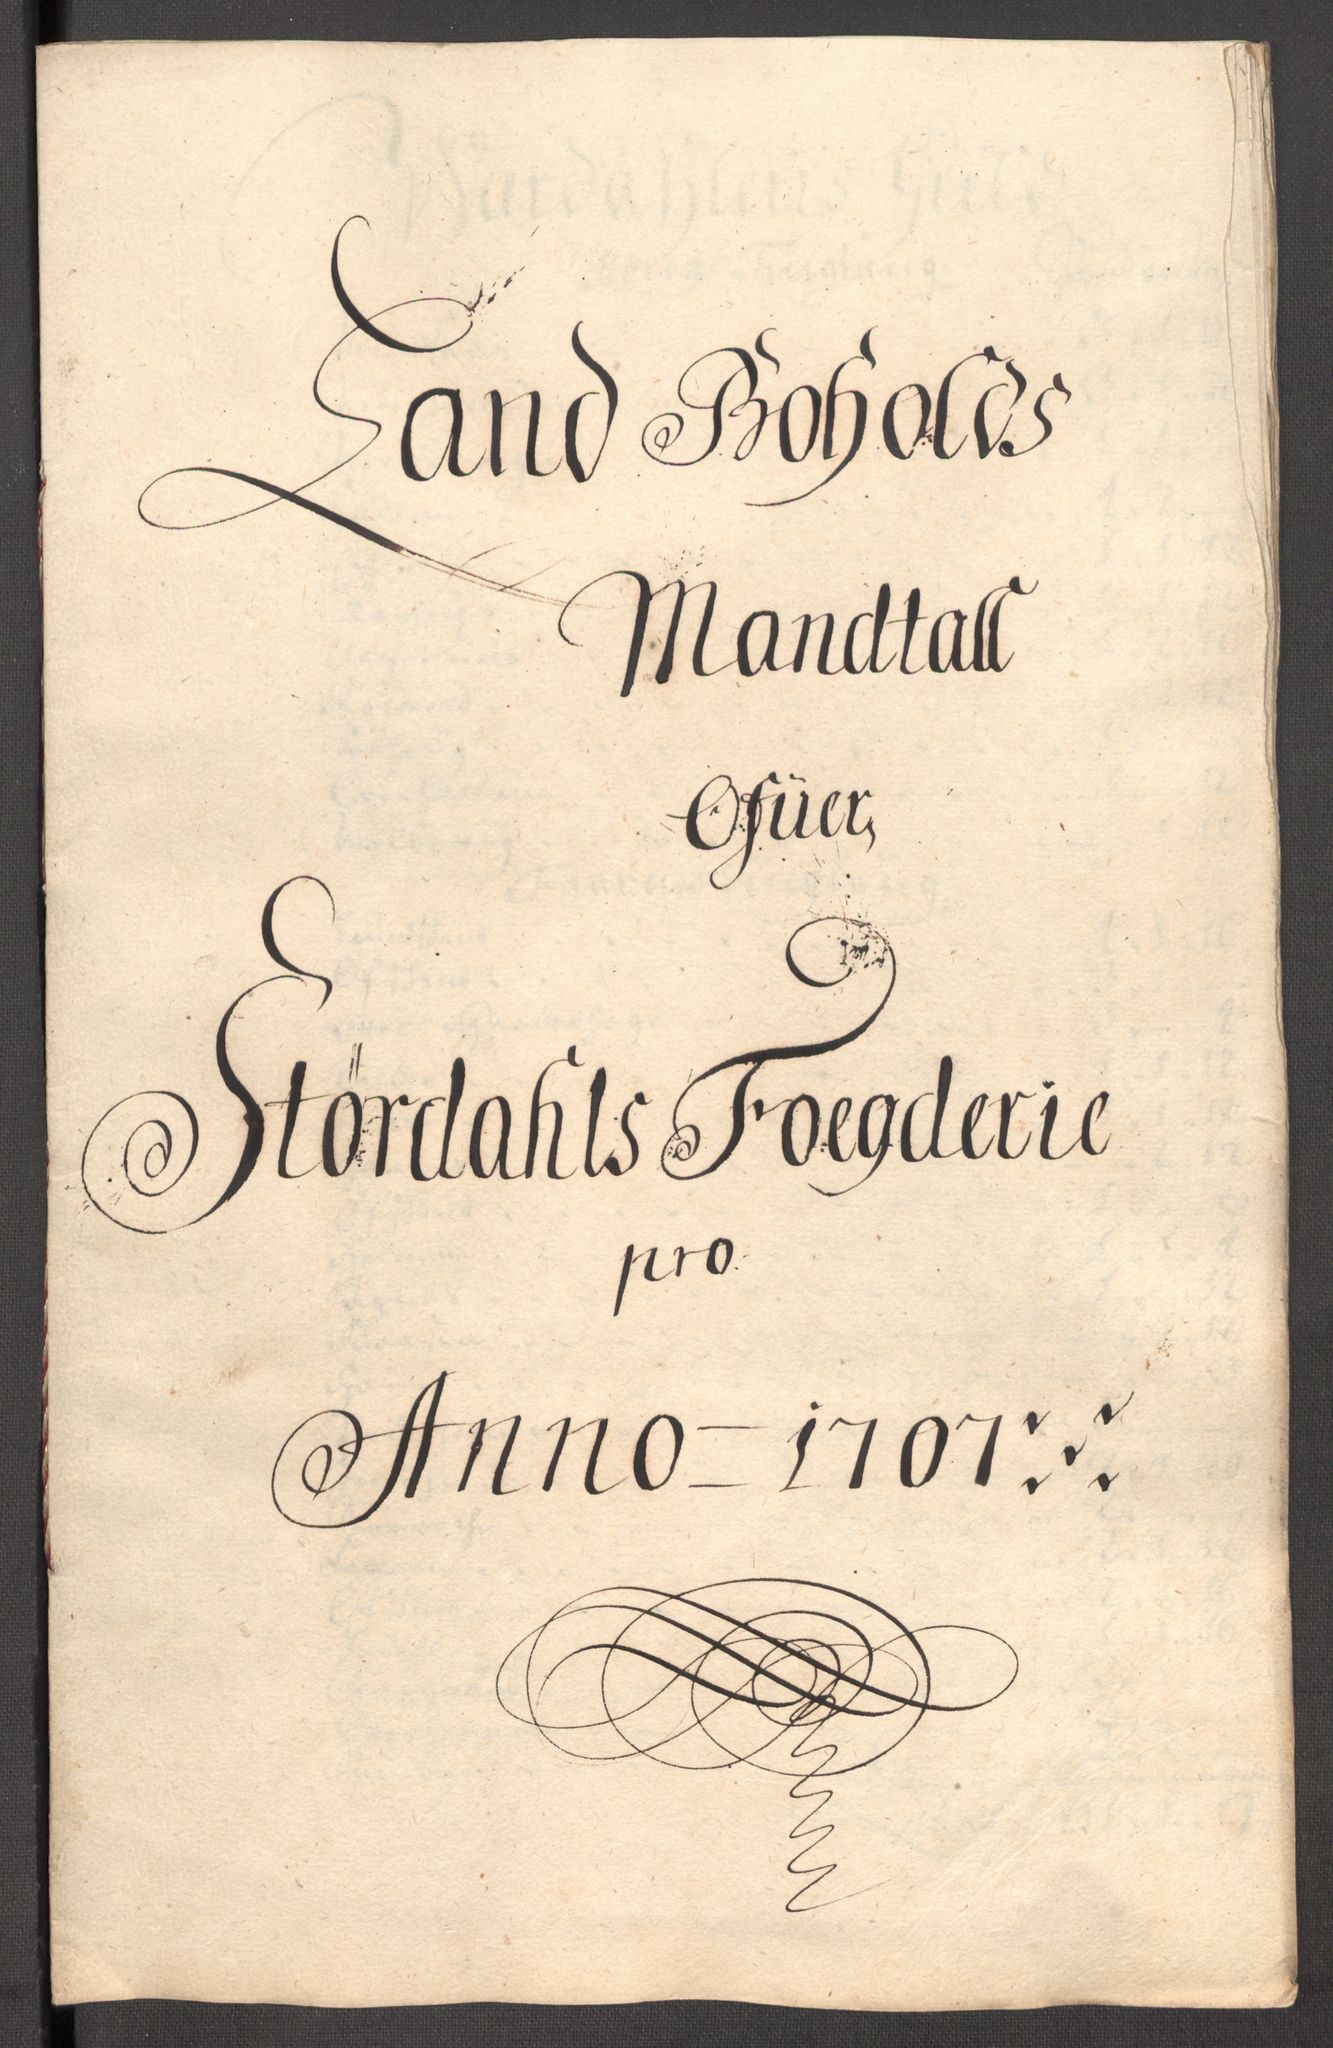 Land Boholds
Mandtall
Ofüer,
Stördahls Foegderie
pro
Anno = 1707